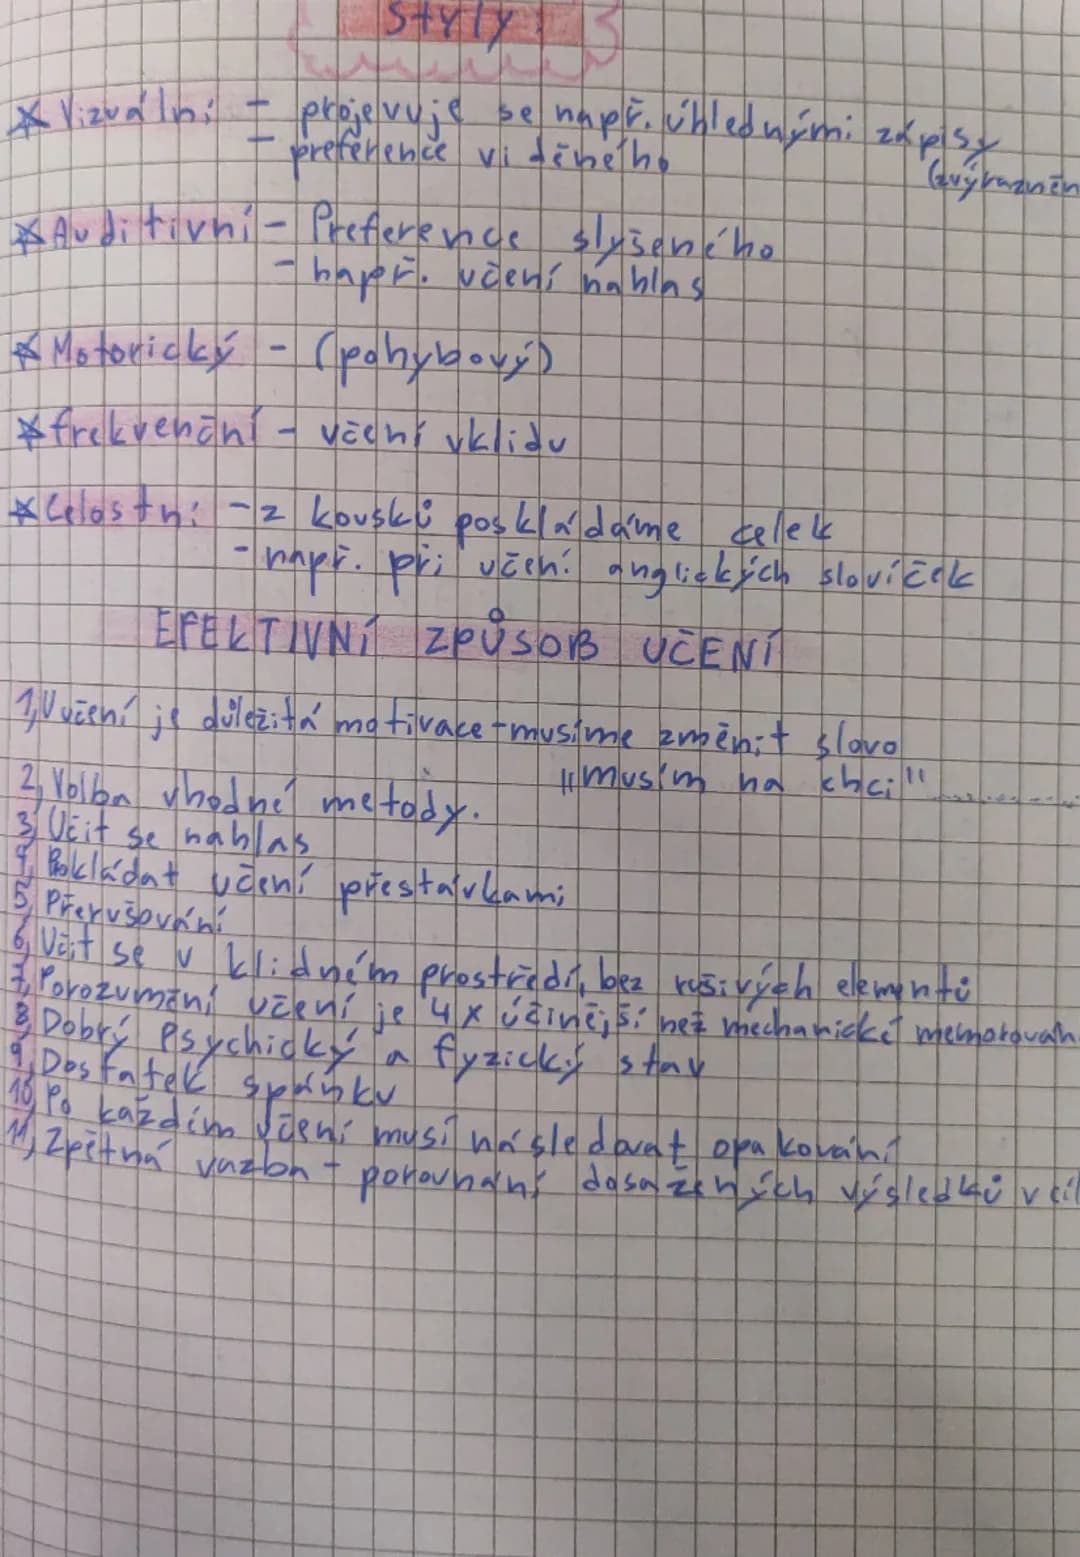 Styly:
* Vizuální - projevuje se např. úhlednými zápisy
- preference viděného (zvýrazněn
* Auditivní - Preference slyšeného
- např. učení nahlas
* Motorický - (pohybový)
* frekvenční - učení vklidu
* Celostní - z kousků poskládáme celek
- např. při učení anglických slovíček
EFEKTIVNÍ ZPŮSOB UČENÍ
1, V učení je důležitá motivace - musíme změnit slovo
"musím na chci"
2, Volba vhodné metody.
3, Učit se nahlas
4, Pokládat učení přestávkami
5, Přerušování
6, Učit se v klidném prostředí, bez rušivých elementů
7, Porozumění učení je 4x účinější než mechanické memorován
8, Dobrý Psychický a fyzický stav
9, Dostatek spánku
10, Po každém učení musí následovat opakování
11, Zpětná vazba - porovnání dosažených výsledků v cíl